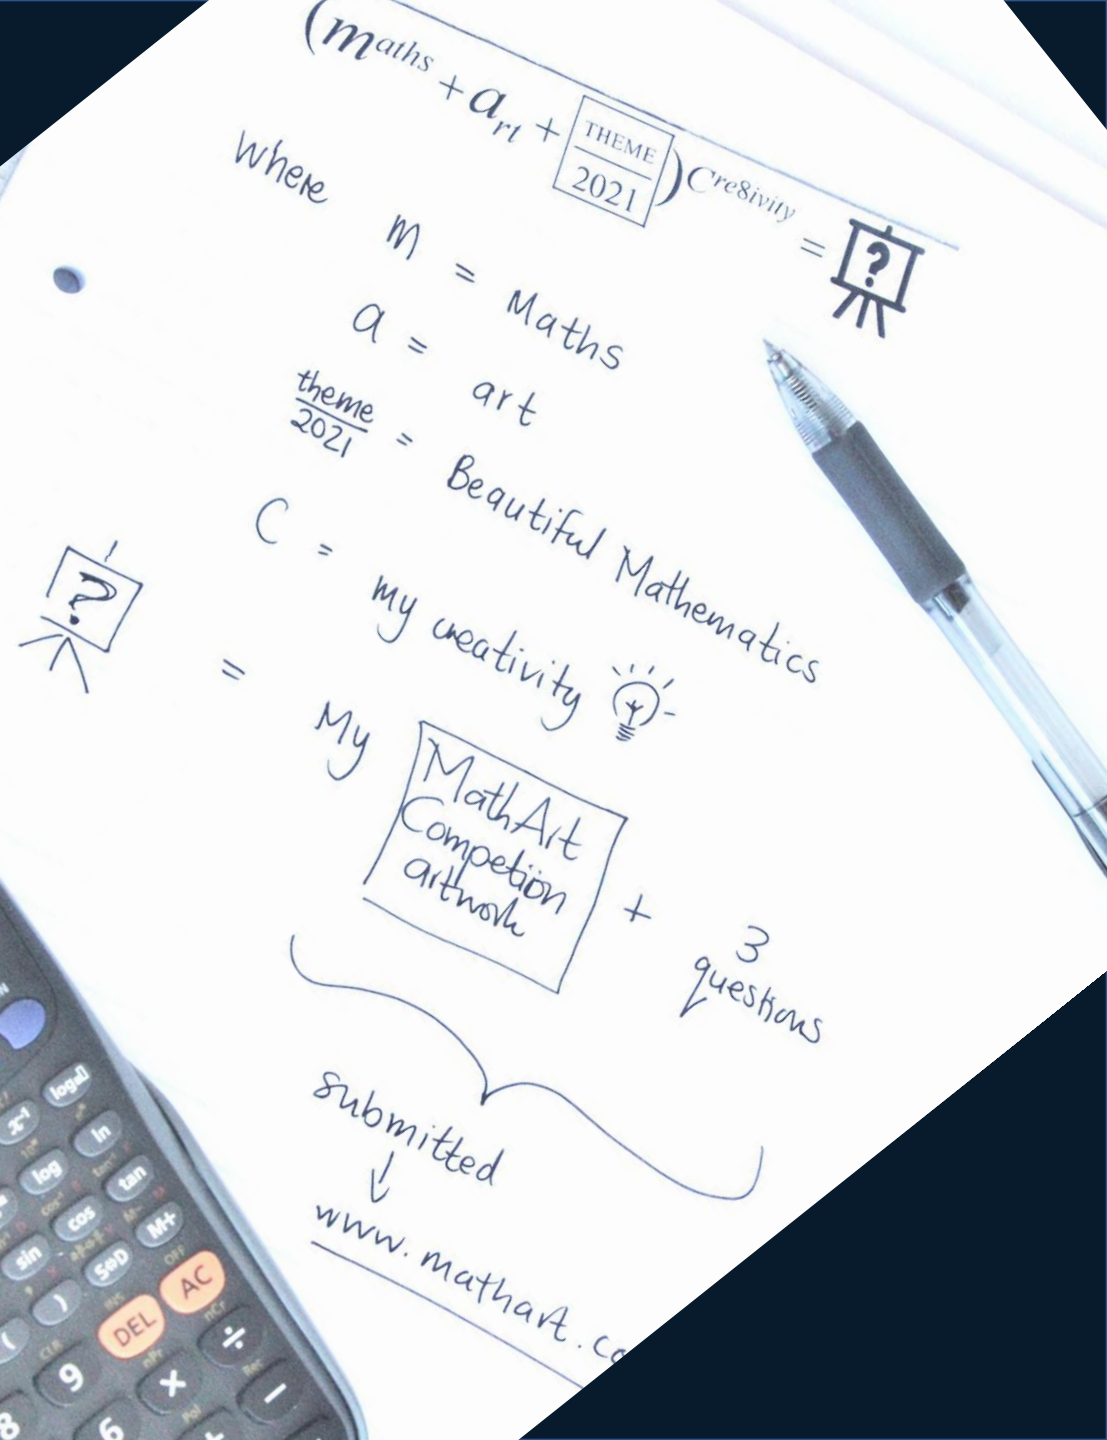 (maths + art + THEME/2021)Cre8ivity = ?
where
m = Maths
a = art
theme/2021 = Beautiful Mathematics
C = my creativity
? = My MathArt Competiion artwork + 3 questions
submitted
↓
www.mathart.co
log
x⁻¹
ln
log
tan
cos
M+
sin
S⇔D
)
AC
(
DEL
÷
9
×
−
8
6
+